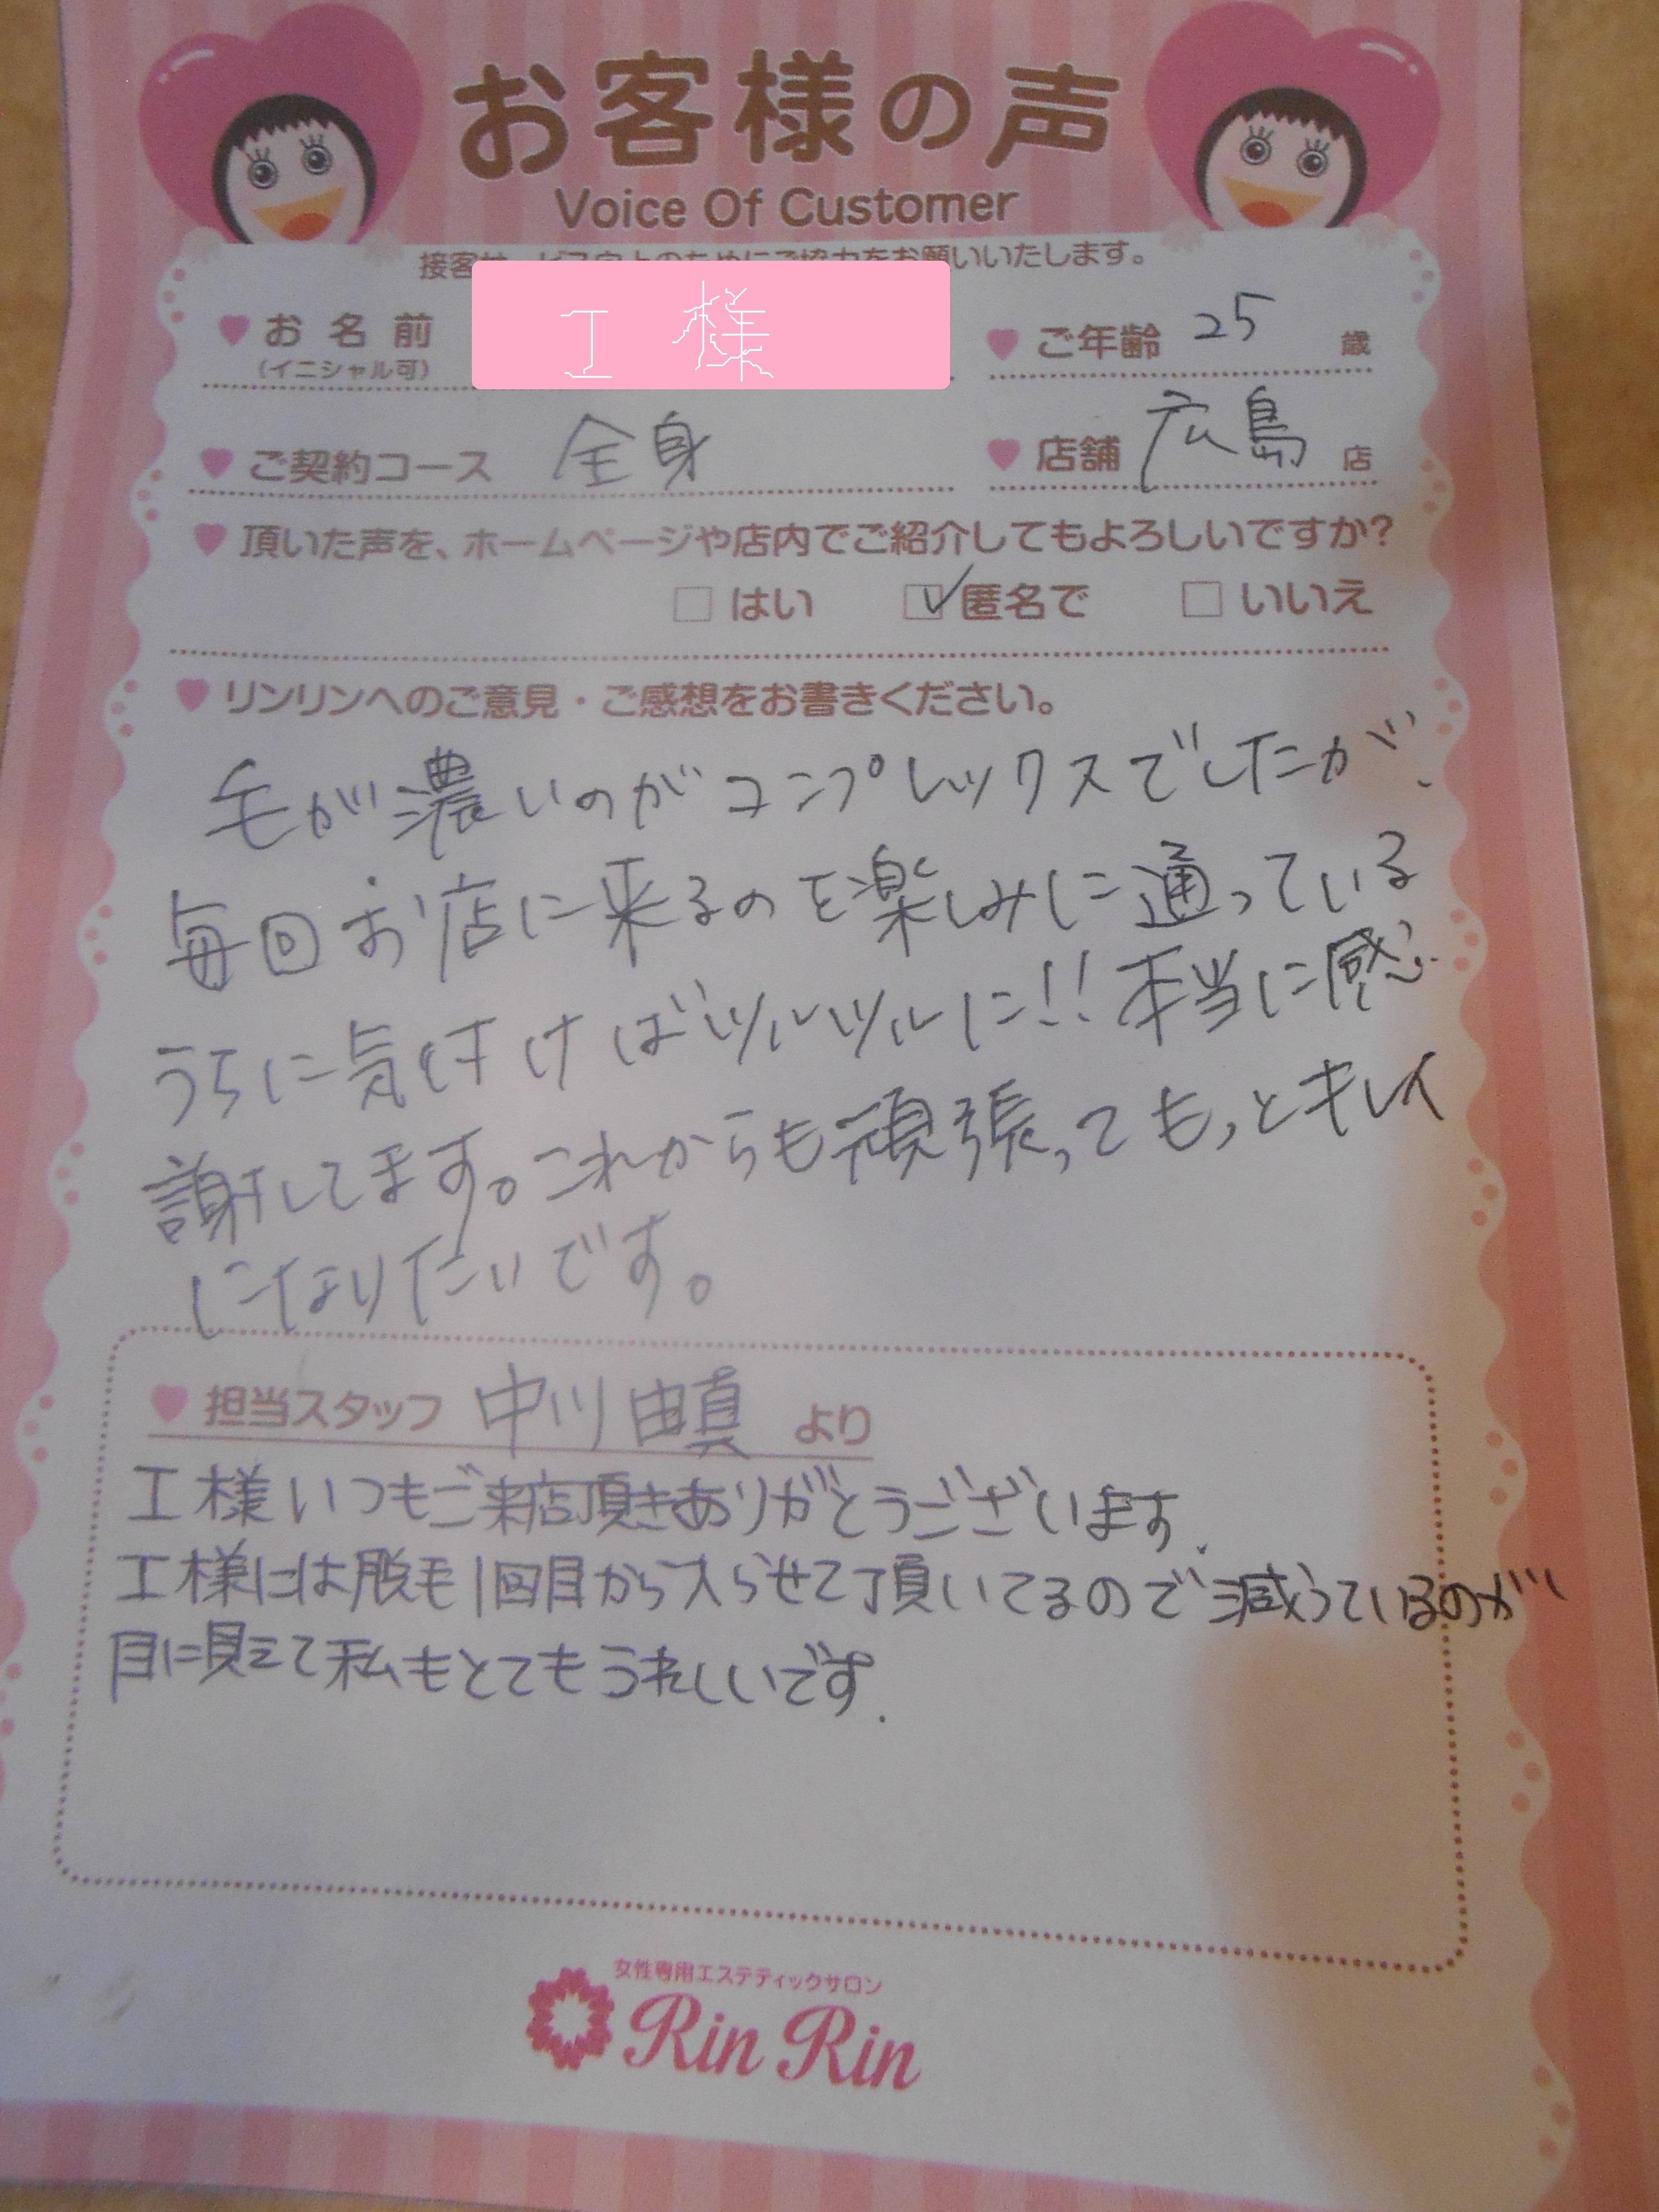 お客様の声
Voice Of Customer
接客サービス向上のためにご協力をお願いいたします。
お名前 I 様 ご年齢 25 歳
(イニシャル可)
ご契約コース 全身 店舗 広島 店
頂いた声を、ホームページや店内でご紹介してもよろしいですか?
はい 匿名で いいえ
リンリンへのご意見・ご感想をお書きください。
毛が濃いのがコンプレックスでしたが、
毎回お店に来るのを楽しみに通っている
うちに気付けばツルツルに!!本当に感
謝してます。これからも頑張ってもっとキレイ
になりたいです。
担当スタッフ 中川由真 より
I様いつもご来店頂きありがとうございます。
I様には脱毛1回目から入らせて頂いてるので減っているのが
目に見えて私もとてもうれしいです。
女性専用エステティックサロン
Rin Rin